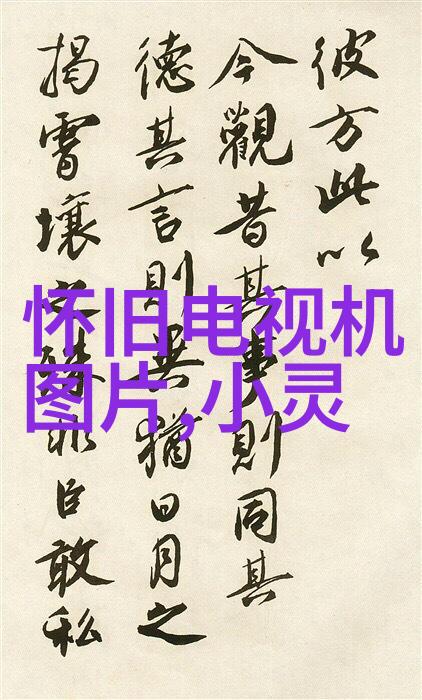 彼方此以
今觀昔其事則同其
德其言則異猶日月之
揭霄壤之殊非臣敢私
怀旧电视机
图片,小灵